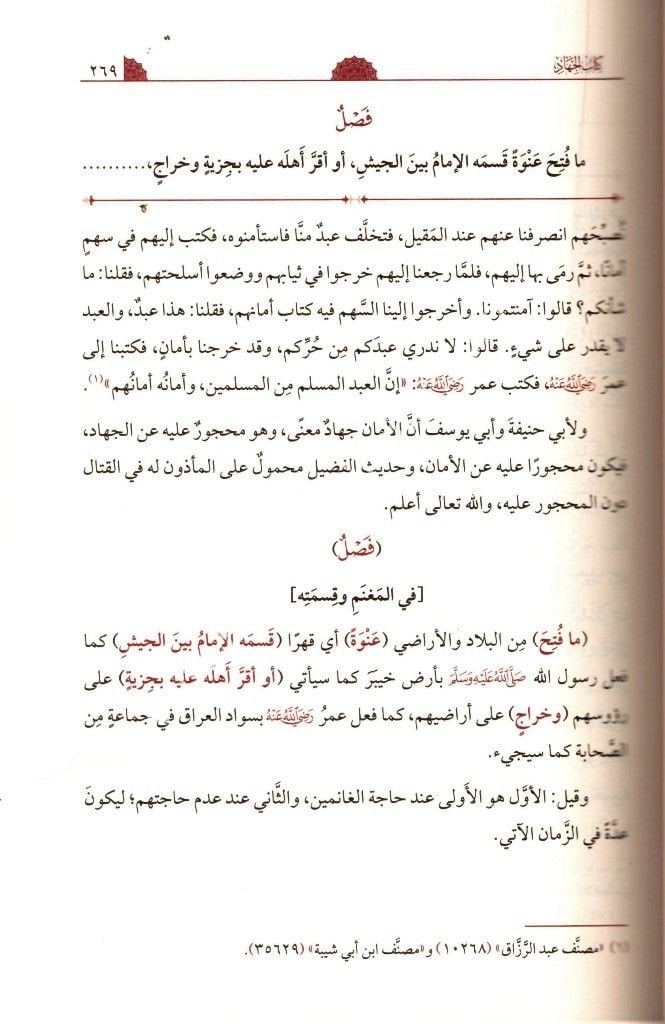 كتاب الجهاد
٢٦٩
فَصْلٌ
ما فُتِحَ عَنْوَةً قَسمَه الإمامُ بينَ الجيشِ، أو أقرَّ أَهلَه عليه بجِزيةٍ وخراجٍ،..........
نُصبِّحَهم انصرفنا عنهم عند المَقيل، فتخلَّف عبدٌ منَّا فاستأمنوه، فكتب إليهم في سهمٍ
أمانًا، ثمَّ رمَى بها إليهم، فلمَّا رجعنا إليهم خرجوا في ثيابهم ووضعوا أسلحتهم، فقلنا: ما
شأنكم؟ قالوا: آمنتمونا. وأخرجوا إلينا السَّهم فيه كتاب أمانهم، فقلنا: هذا عبدٌ، والعبد
لا يقدر على شيءٍ. قالوا: لا ندري عبدَكم مِن حُرِّكم، وقد خرجنا بأمانٍ، فكتبنا إلى
عمرَ رَضِيَ اللَّهُ عَنْهُ، فكتب عمر رَضِيَ اللَّهُ عَنْهُ: «إنَّ العبد المسلم مِن المسلمين، وأمانُه أمانُهم»(١).
ولأبي حنيفةَ وأبي يوسفَ أنَّ الأمان جهادٌ معنًى، وهو محجورٌ عليه عن الجهاد،
فيكون محجورًا عليه عن الأمان، وحديث الفضيل محمولٌ على المأذون له في القتال
دون المحجور عليه، والله تعالى أعلم.
(فَصْلٌ)
[في المَغنَمِ وقِسمَتِه]
(ما فُتِحَ) مِن البلاد والأراضي (عَنْوَةً) أي قهرًا (قَسمَه الإمامُ بينَ الجيشِ) كما
فعل رسول الله صَلَّى اللَّهُ عَلَيْهِ وَسَلَّمَ بأرض خيبرَ كما سيأتي (أو أقرَّ أَهلَه عليه بجِزيةٍ) على
رؤوسهم (وخراجٍ) على أراضيهم، كما فعل عمرُ رَضِيَ اللَّهُ عَنْهُ بسواد العراق في جماعةٍ مِن
الصَّحابة كما سيجيء.
وقيل: الأوَّل هو الأَولى عند حاجة الغانمين، والثَّاني عند عدم حاجتهم؛ ليكونَ
عدَّةً في الزَّمان الآتي.
(١) «مصنَّف عبد الرَّزَّاق» (١٠٢٦٨) و«مصنَّف ابن أبي شيبة» (٣٥٦٢٩).